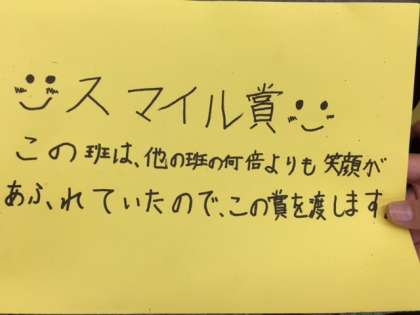 スマイル賞
この班は、他の班の何倍よりも笑顔が
あふれていたので、この賞を渡します。